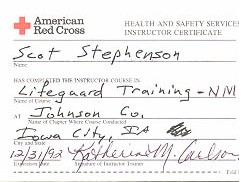 American
Red Cross
HEALTH AND SAFETY SERVICES
INSTRUCTOR CERTIFICATE
Scot Stephenson
Name
HAS COMPLETED THE INSTRUCTOR COURSE IN
Lifeguard Training - NM
Name of Course
AT Johnson Co.
Name of Chapter Where Course Conducted
Iowa City, IA
City and State
12/31/92 Katherine M. Carlson
Expiration Date Signature of Instructor Trainer